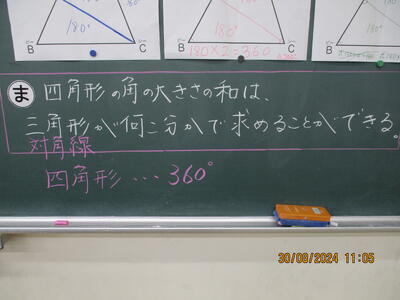 180°
B
C
180°
180×2=360
180°
B
C
ま 四角形の角の大きさの和は、
三角形が何こ分かで求めることができる。
対角線
四角形…360°
30/08/2024 11:05